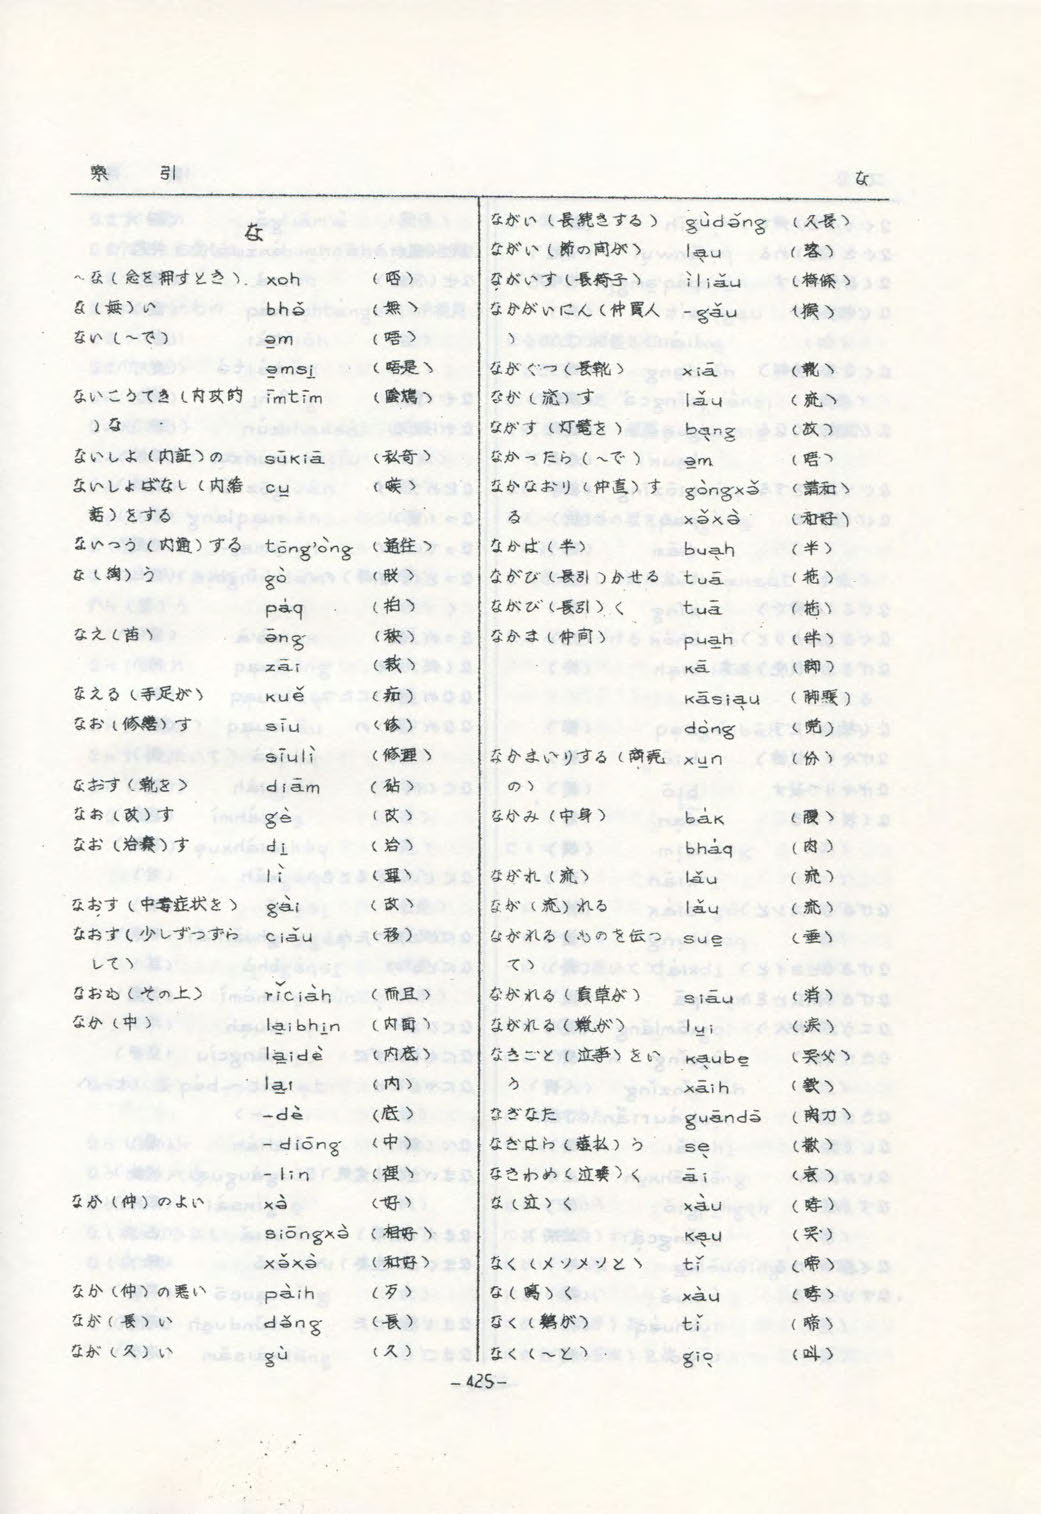 索 引
な
な
〜な(念を押すとき) xoh (唔)
な(無)い bhə̌ (無)
ない(〜で) ə̱m (唔)
ə̱msi̱ (唔是)
ないこうてき(内攻的 īmtīm (陰鴆)
)な
ないしよ(内証)の sūĸiā (私奇)
ないしょばなし(内緒 cu̱
話)をする
ないつう(内通)する tōng'òng (通往)
な(綯)う gò
páq (拍)
なえ(苗) ə̄ng (秧)
zāi (栽)
なえる(手足が) ĸuě (疟)
なお(修繕)す sīu (修)
sīulì (修理)
なおす(靴を) diām (砧)
なお(改)す gè (改)
なお(治療)す di̱ (治)
lì
なおす(中毒症状を) gài (改)
なおす(少しずつずら ciǎu (移)
して)
なおむ(その上) rǐciàh (而且)
なか(中) la̱ibhi̱n (内面)
la̱idè (内底)
la̱i (内)
-dè (底)
-diōng (中)
-lin (裡)
なか(仲)のよい xə̀ (好)
siōngxə̀ (相好)
xə̌xə̀ (和好)
なか(仲)の悪い pàih (歹)
なが(長)い də̌ng (長)
なが(久)い gù (久)
ながい(長続きする) gùdə̌ng (久長)
ながい(節の間が) la̱u (落)
ながいす(長椅子) ìliǎu (椅條)
なかがいにん(仲買人 -gǎu (猴)
)
ながぐつ(長靴) xiā (靴)
なが(流)す lǎu (流)
ながす(灯篭を) ba̱ng (放)
なかったら(〜で) ə̱m (唔)
なかなおり(仲直)す gòngxə̌ (講和)
る xə̌xə̀ (和好)
なかば(半) bua̱h (半)
ながび(長引)かせる tuā (拖)
ながび(長引)く tuā (拖)
なかま(仲間) pua̱h (伴)
ĸā (脚)
ĸāsia̱u (脚賬)
dòng (党)
なかまいりする(商売 xu̱n (份)
の)
なかみ(中身) báĸ (腹)
bháq (肉)
ながれ(流) lǎu (流)
なが(流)れる lǎu (流)
ながれる(ものを伝っ sue̱ (垂)
て)
ながれる(質草が) siāu (消)
ながれる(蝋が) lu̱i (淚)
なきごと(泣事)をい ĸa̱ube̱ (哭父)
う xāih (歎)
なぎなた guāndə̄
なぎはら(薙払)う se̱ (撒)
なきわめ(泣喚)く āi (哀)
な(泣)く xàu (哮)
ĸa̱u (哭)
なく(メソメソと) tǐ (啼)
な(鳴)く xàu (哮)
なく(鶏が) tǐ (啼)
なく(〜と) gio̱ (叫)
-425-